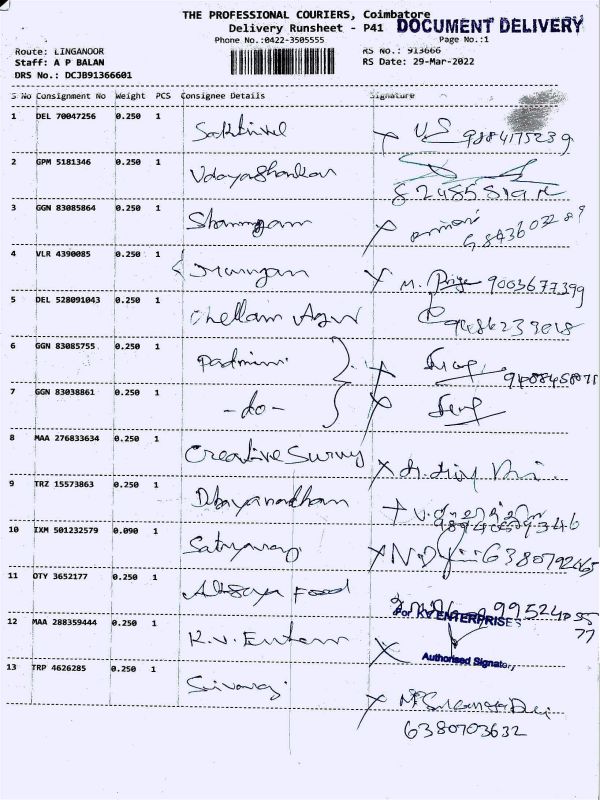 THE PROFESSIONAL COURIERS, Coimbatore
Delivery Runsheet - P41 DOCUMENT DELIVERY
Phone No.:0422-3505555 Page No.:1
Route: LINGANOOR RS No.: 913666
Staff: A P BALAN RS Date: 29-Mar-2022
DRS No.: DCJB91366601
S No Consignment No Weight PCS Consignee Details Signature
1 DEL 70047256 0.250 1 Sakthivel 9884175239
2 GPM 5181346 0.250 1 Udayashankar
3 GGN 83085864 0.250 1 Shanmugam
4 VLR 4390085 0.250 1 Murugan M. Priya 9003677399
5 DEL 528091043 0.250 1 Chellam Agur
6 GGN 83085755 0.250 1 Padmini
7 GGN 83038861 0.250 1 -do-
8 MAA 276833634 0.250 1 Creative Survey
9 TRZ 15573863 0.250 1 Dhayanadham
10 IXM 501232579 0.090 1 Sathyaraj 6380792465
11 OTY 3652177 0.250 1 Food
For KV ENTERPRISES
12 MAA 288359444 0.250 1 K.V. Enter
Authorised Signatory
13 TRP 4626285 0.250 1 Sivaraj
6380703632